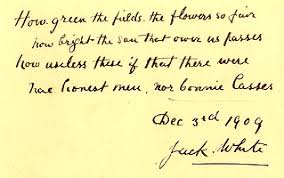 How green the fields. the flowers so fair
how bright the sun that over us passes
how useless these if that there were
nae honest men, nor bonnie Lasses
Dec 3rd 1909
Jack. White